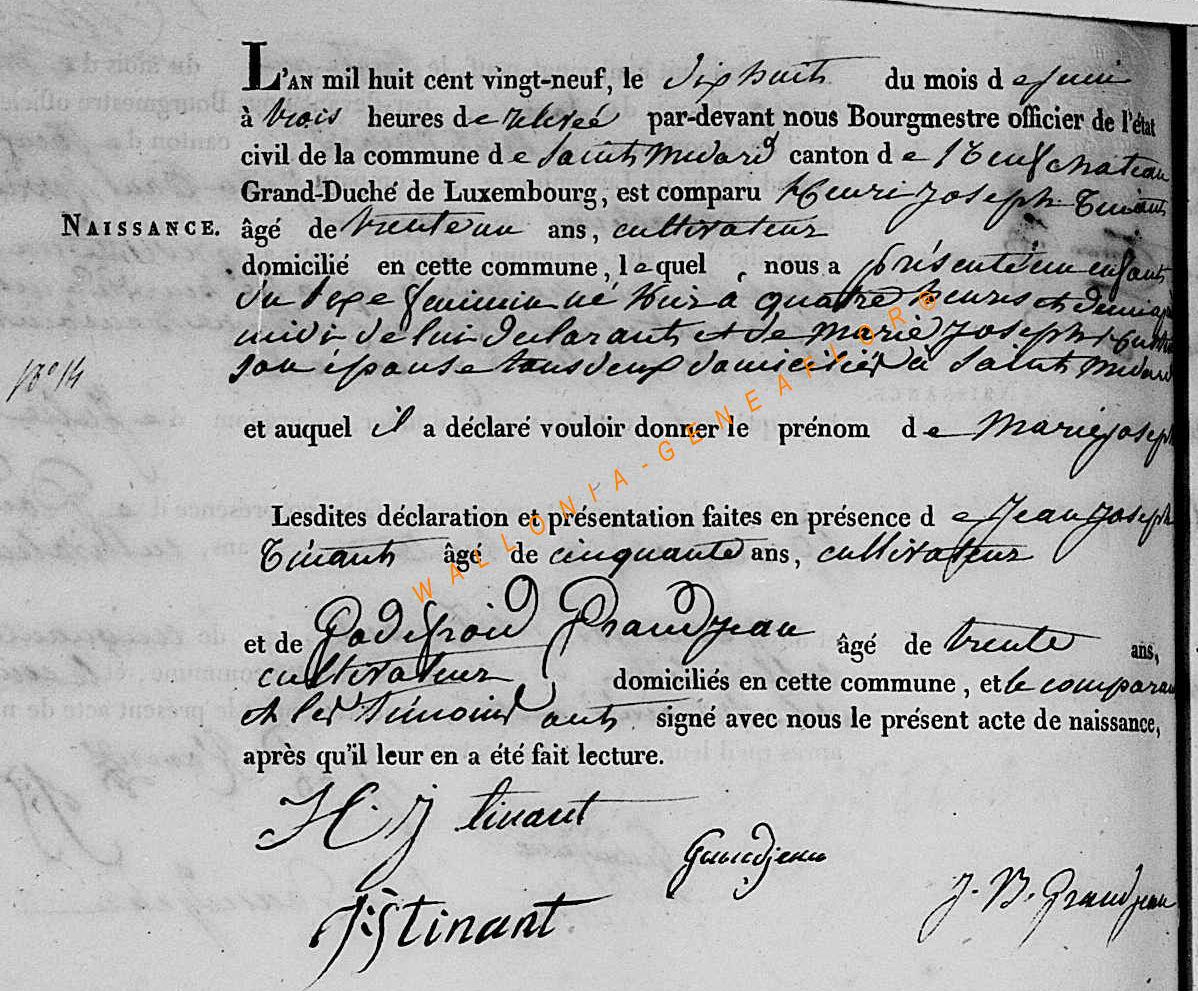 L'AN mil huit cent vingt-neuf, le dixhuit du mois de juin
à trois heures de relevée par-devant nous Bourgmestre officier de l'état
civil de la commune de Saint Medard canton de Neufchateau
Grand-Duché de Luxembourg, est comparu Henri Joseph Tinant
NAISSANCE. âgé de trente un ans, cultivateur
domicilié en cette commune, lequel nous a présenté un enfant
du sexe feminin né hier a quatre heures et demi
midi de lui declarant et de Marie Joseph
son épouse tous deux domiciliés à Saint Medard
N° 14
et auquel il a déclaré vouloir donner le prénom de Marie Joseph
Lesdites déclaration et présentation faites en présence de Jean Joseph
Tinant âgé de cinquante ans, cultivateur
et de Godefroid Grandjean âgé de trente ans,
cultivateur domiciliés en cette commune, et le comparant
et les témoins ont signé avec nous le présent acte de naissance,
après qu'il leur en a été fait lecture.
H. j tinant
Grandjean
J. B. Grandjean
JJ tinant
WALLONIA-GENEAFLOR®